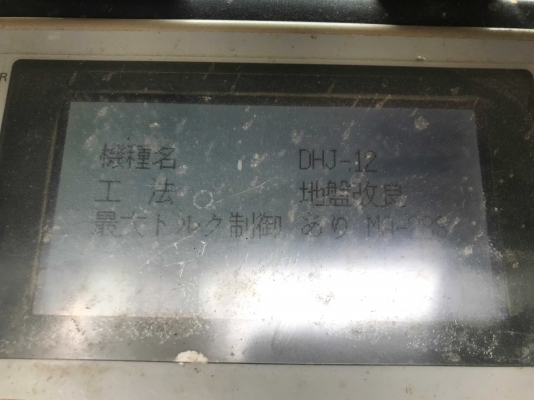 R
機種名 DHJ-12
工 法 地盤改良
最大トルク制御 あり